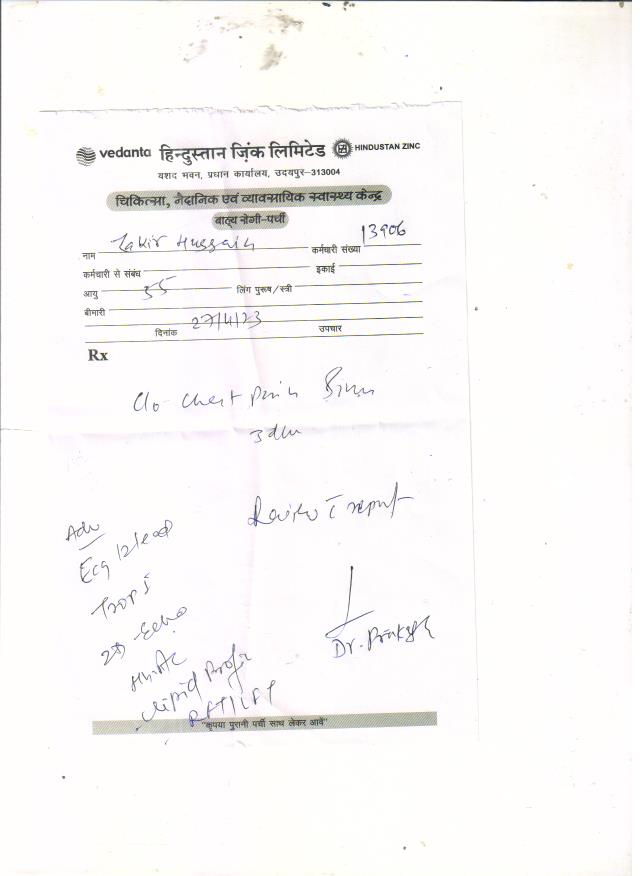 vedanta हिन्दुस्तान ज़िंक लिमिटेड HINDUSTAN ZINC
यशद भवन, प्रधान कार्यालय, उदयपुर-313004
चिकित्सा, नैदानिक एवं व्यावसायिक स्वास्थ्य केन्द्र
बाह्य रोगी-पर्ची
नाम Zakir Hussain कर्मचारी संख्या 13906
कर्मचारी से संबंध इकाई
आयु 35 लिंग पुरूष/स्त्री
बीमारी
दिनांक 27/4/23 उपचार
Rx
C/o chest pain
Review c̄ report
Adv
Ecg 12 lead
Trop I
2D Echo
Lipid Profile
RFT/LFT
Dr. Prakash
"कृपया पुरानी पर्ची साथ लेकर आवें"